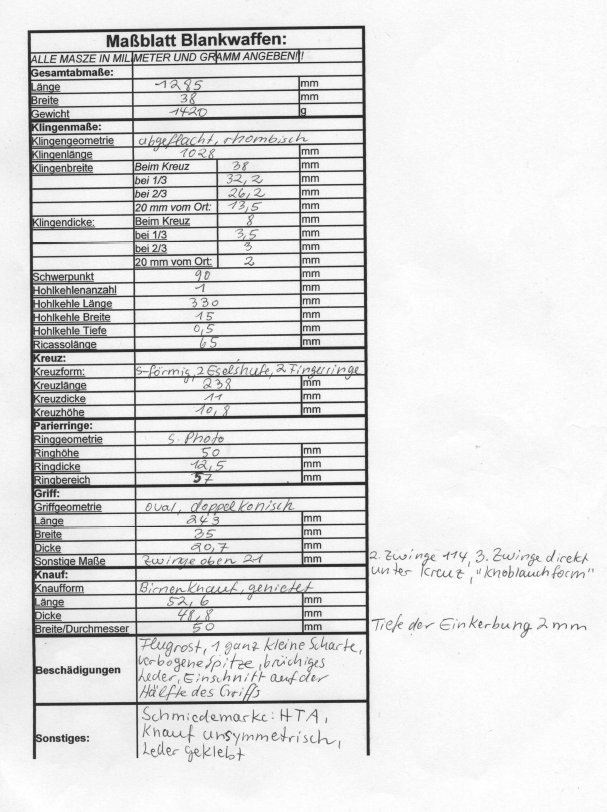 Maßblatt Blankwaffen:
ALLE MASZE IN MILIMETER UND GRAMM ANGEBEN!!
Gesamtabmaße:
Länge 1285 mm
Breite 38 mm
Gewicht 1420 g
Klingenmaße:
Klingengeometrie abgeflacht, rhombisch
Klingenlänge 1028 mm
Klingenbreite Beim Kreuz 38 mm
bei 1/3 32,2 mm
bei 2/3 26,2 mm
20 mm vom Ort: 13,5 mm
Klingendicke: Beim Kreuz 8 mm
bei 1/3 3,5 mm
bei 2/3 3 mm
20 mm vom Ort: 2 mm
Schwerpunkt 90 mm
Hohlkehlenanzahl 1 mm
Hohlkehle Länge 330 mm
Hohlkehle Breite 15 mm
Hohlkehle Tiefe 0,5 mm
Ricassolänge 65 mm
Kreuz:
Kreuzform: S-förmig, 2 Eselshufe, 2 Fingerringe
Kreuzlänge 238 mm
Kreuzdicke 11 mm
Kreuzhöhe 10,8 mm
Parierringe:
Ringgeometrie S. Photo
Ringhöhe 50 mm
Ringdicke 12,5 mm
Ringbereich 57 mm
Griff:
Griffgeometrie oval, doppelkonisch
Länge 243 mm
Breite 35 mm
Dicke 20,7 mm
Sonstige Maße Zwinge oben 21 2. Zwinge 114, 3. Zwinge direkt
unter Kreuz, "Knoblauchform"
Knauf:
Knaufform Birnenknauf, genietet
Länge 52,6 mm
Dicke 48,8 mm
Breite/Durchmesser 50 mm Tiefe der Einkerbung 2mm
Beschädigungen Flugrost, 1 ganz kleine Scharte,
verbogene Spitze, brüchiges
Leder, Einschnitt auf der
Hälfte des Griffs
Sonstiges: Schmiedemarke: HTA,
Knauf unsymmetrisch,
Leder geklebt